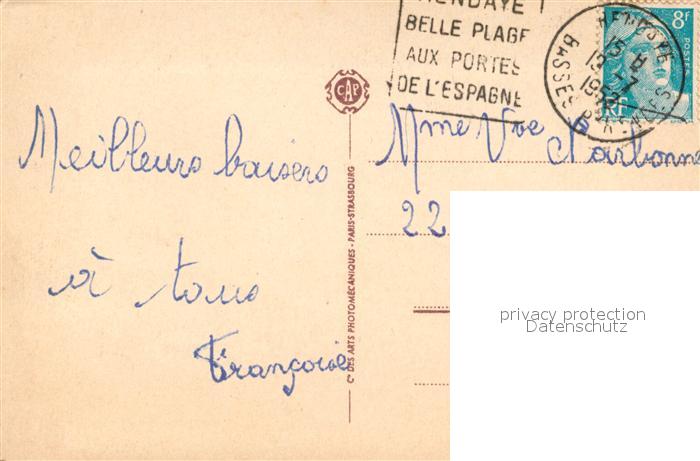 HENDAYE
BELLE PLAGE
AUX PORTES
DE L'ESPAGNE
HENDAYE
BASSES PYRENEES
8F
POSTES
RF
CAP
Meilleurs baisers
à tous
Françoise
Cie DES ARTS PHOTOMÉCANIQUES - PARIS-STRASBOURG
Mme Vve Narbonne
22
privacy protection
Datenschutz